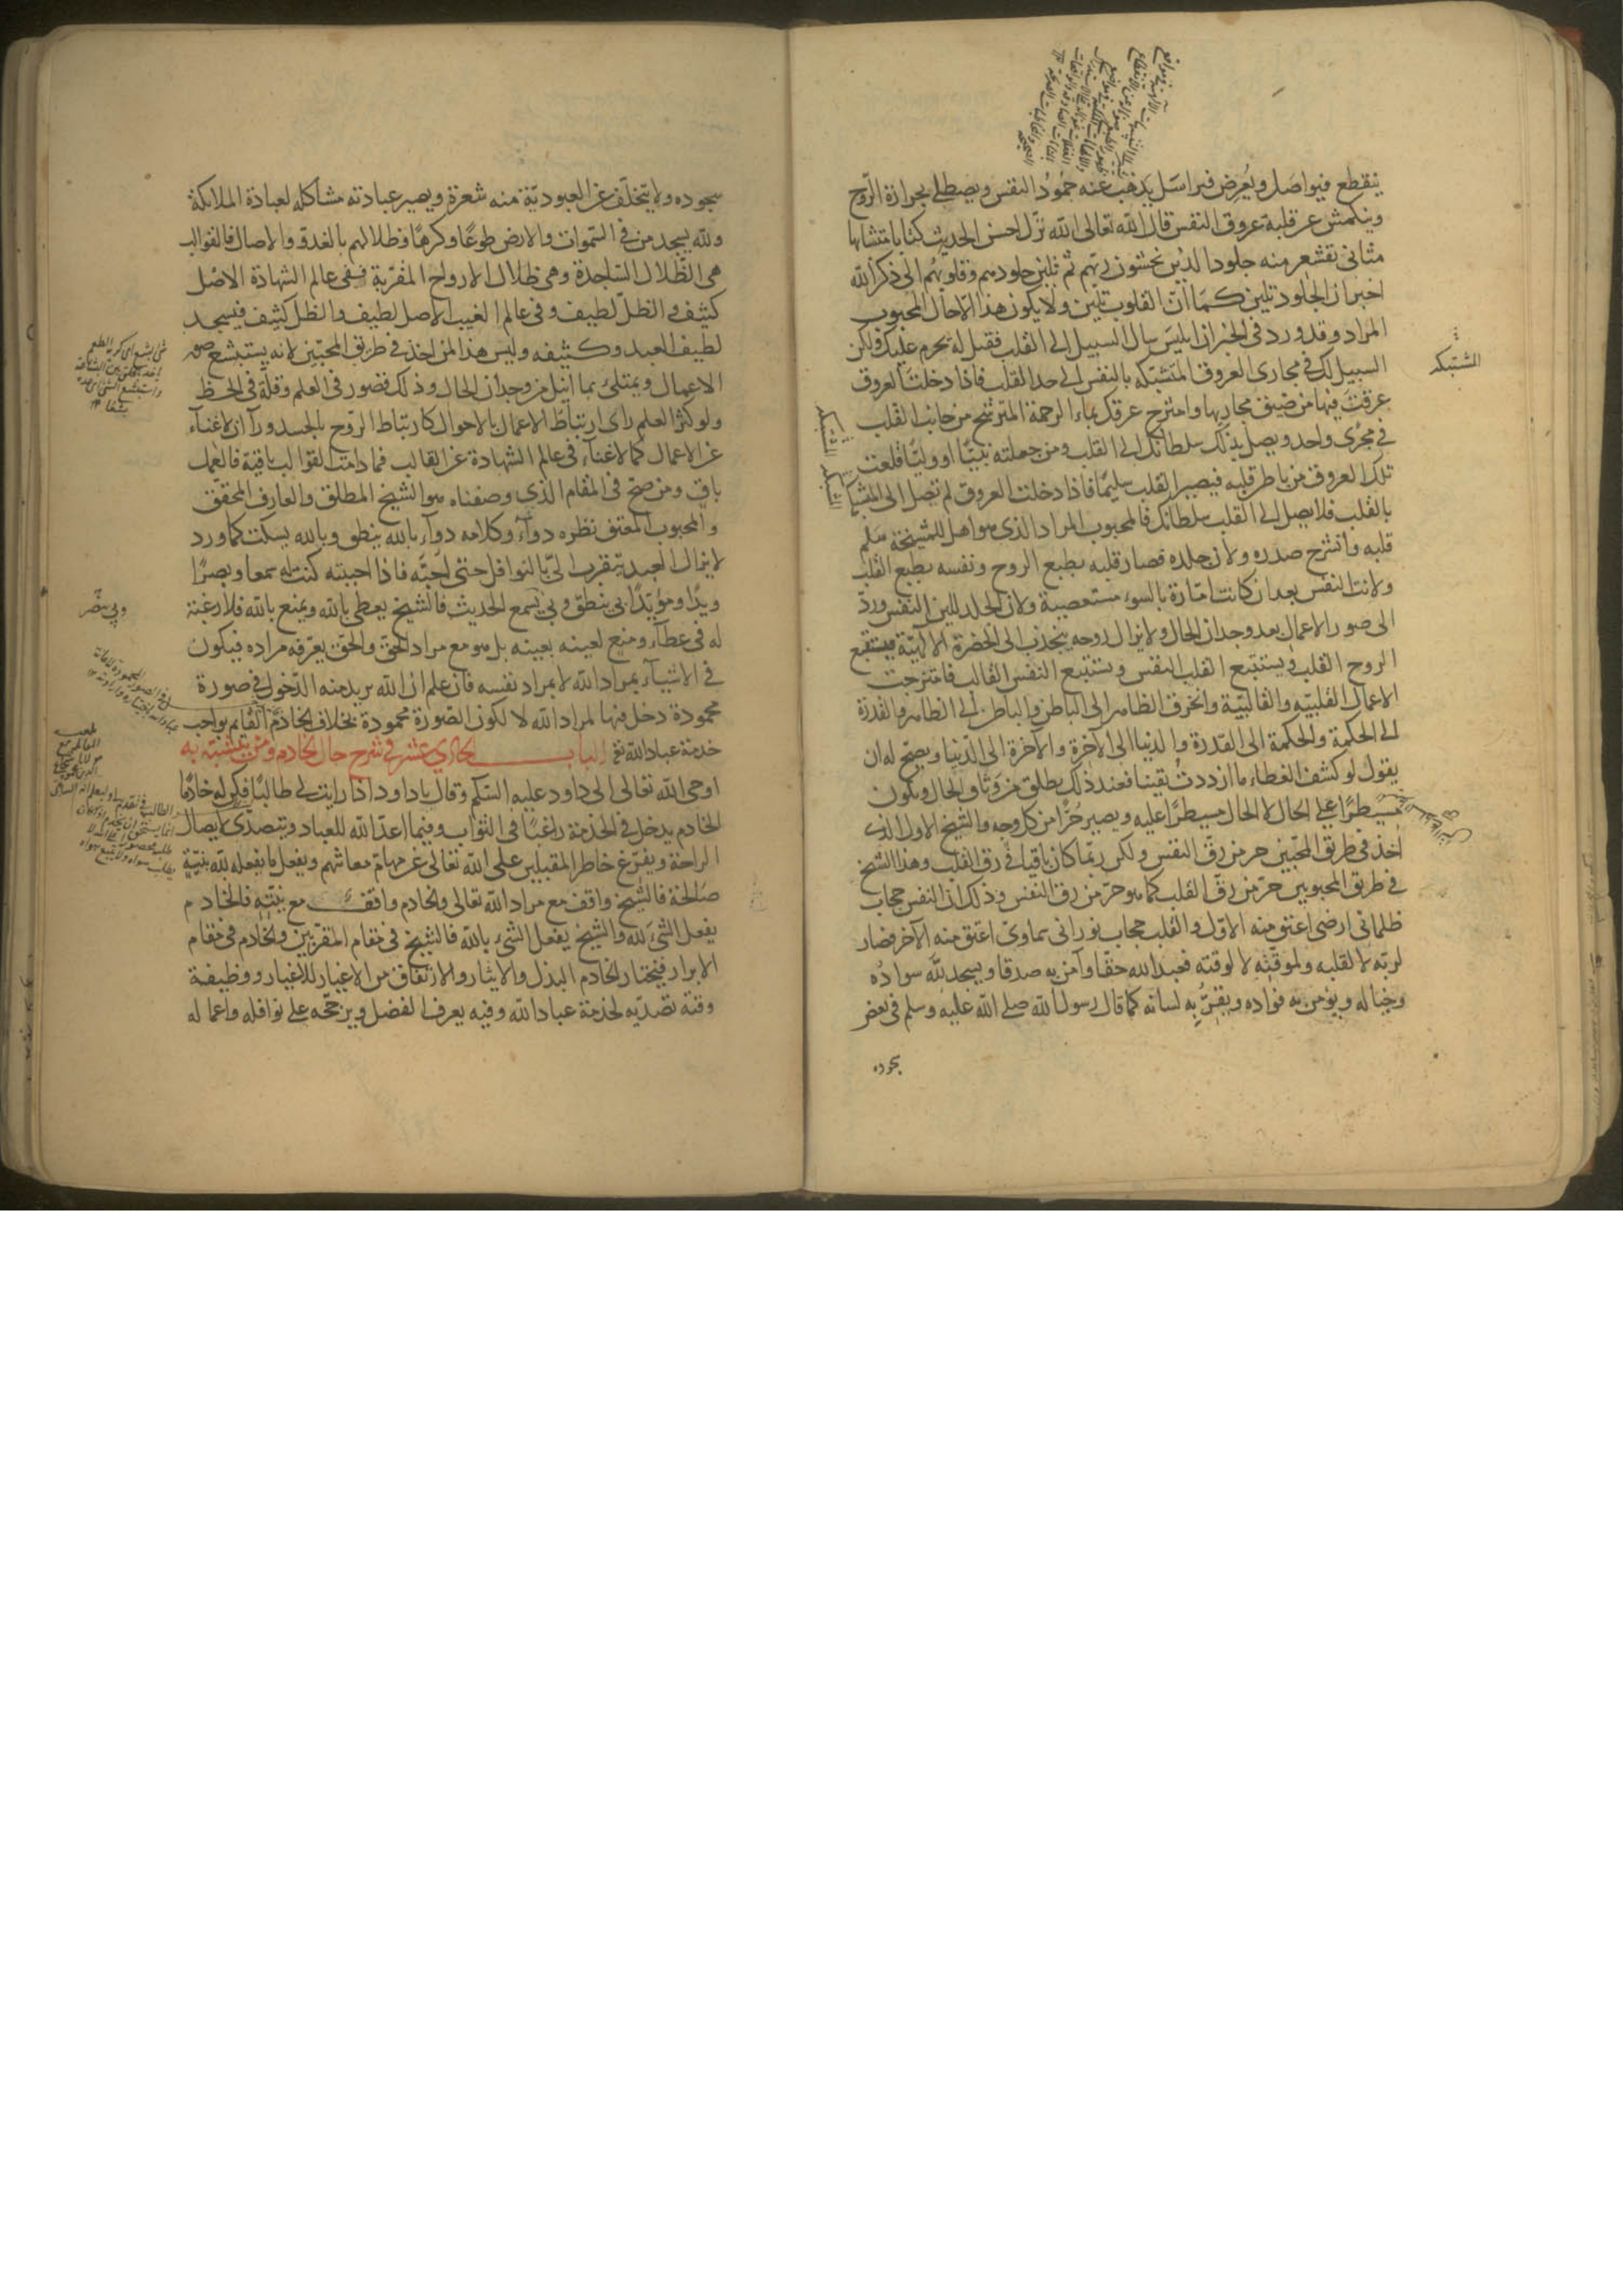 ينقطع فيواصل ويعرض فيراسل يذهب عنه جمود النفس ويصطلي بحرارة الروح
وينكمش عن قلبه عروق النفس قال الله تعالى الله نزل احسن الحديث كتابا متشابها
مثانى تقشعر منه جلود الذين يخشون ربهم ثم تلين جلودهم وقلوبهم الى ذكر الله
اخبر ان الجلود تلين كما ان القلوب تلين ولا يكون هذا الا حال المحبوب
المراد وقد ورد فى الخبر ان ابليس سال السبيل الى القلب فقيل له يحرم عليك ولكن
السبيل لك فى مجارى العروق المتشبكه بالنفس الى حد القلب فاذا دخلت العروق
عرقت فيها من ضيق مجاريها وامتزج عرقك بماء الرحمة المترشح من جانب القلب
فى مجرى واحد ويصل بذلك سلطانك الى القلب ومن جعلته نبيا او وليا قلعت
تلك العروق من باطن قلبه فيصير القلب سليما فاذا دخلت العروق لم تصل الى المشبكة
بالقلب فلا يصل الى القلب سلطانك فالمحبوب المراد الذى هو اهل للمشيخة سلم
قلبه وانشرح صدره ولان جلده فصار قلبه بطبع الروح ونفسه بطبع القلب
ولانت النفس بعد ان كانت امارة بالسوء مستعصية ولان الجلد للين النفس ورد
الى صور الاعمال بعد وجدان الحال ولا يزال روحه ينجذب الى الحضرة الالهية فيستتبع
الروح القلب ويستتبع القلب النفس ويستتبع النفس القالب فامتزجت
الاعمال القلبيه والقالبية وانخرق الظاهر الى الباطن والباطن الى الظاهر والقدرة
الى الحكمة والحكمة الى القدرة والدنيا الى الآخرة والآخرة الى الدنيا ويصح له ان
يقول لو كشف الغطاء ما ازددت يقينا فعند ذلك يطلق من وثاق الحال ويكون
مسيطرا على الحال لا الحال مسيطرا عليه ويصير حرا من كل وجه والشيخ الاول الذى
اخذ فى طريق المحبين حر من رق النفس ولكن ربما كان باقيا فى رق القلب وهذا الشيخ
فى طريق المحبوبين حر من رق القلب كما هو حر من رق النفس وذلك ان النفس حجاب
ظلمانى ارضى اعتق منه الاول والقلب حجاب نورانى سماوى اعتق منه الآخر فصار
لربه لا لقلبه ولموقته لا لوقته فعبد الله حقا وآمن به صدقا ويسجد لله سواده
وخياله ويؤمن به فواده ويقر به لسانه كما قال رسول الله صلى الله عليه وسلم فى بعض
المشتبكه
سجوده ولا يتخلف عن العبودية منه شعرة ويصير عبادته مشاكله لعبادة الملائكة
ولله يسجد من فى السموات والارض طوعا وكرها وظلالهم بالغدو والاصال فالقوالب
هى الظلال الساجدة وهى ظلال الارواح المقربة ففى عالم الشهادة الاصل
كثيف والظل لطيف وفى عالم الغيب الاصل لطيف والظل كثيف فيسجد
لطيف العبد وكثيفه وليس هذا لمن اخذ فى طريق المحبين لانه يستبشع صور
الاعمال ويمتلى بما انيل من وجدان الحال وذلك قصور فى العلم وقلة فى الحظ
ولو كثر العلم راى ارتباط الاعمال بالاحوال كارتباط الروح بالجسد ورآ ان لا غناء
عن الاعمال كما لا غناء فى عالم الشهادة عن القالب فما دامت القوالب باقية فالعمل
باق ومن صح فى المقام الذى وصفناه هو الشيخ المطلق والعارف المحقق
والمحبوب المعتق نظره دواء وكلامه دواء بالله ينطق وبالله يسكت كما ورد
لا يزال العبد يتقرب الى بالنوافل حتى احبه فاذا احببته كنت له سمعا وبصرا
ويدا ومؤيدا بى ينطق وبى يسمع الحديث فالشيخ يعطى بالله ويمنع بالله فلا رغبة
له فى عطاء ومنع لعينه بعينه بل هو مع مراد الحق والحق يعرفه مراده فيكون
فى الاشياء بمراد الله لا بمراد نفسه فان علم ان الله يريد منه الدخول فى صورة
محمودة دخل فيها لمراد الله لا لكون الصورة محمودة بخلاف الخادم القايم بواجب
خدمة عباد الله تعا الباب الحادى عشر فى شرح حال الخادم ومن يتشبه به
اوحى الله تعالى الى داود عليه السلم وقال يا داود اذا رايت لى طالبا فكن له خادما
الخادم يدخل فى الخدمة راغبا فى الثواب وفيما اعد الله للعباد ويتصدى لايصال
الراحة ويفرغ خاطر المقبلين على الله تعالى عن مهام معاشهم ويفعل ما يفعله لله بنية
صالحة فالشيخ واقف مع مراد الله تعالى والخادم واقف مع نيته فالخادم
يفعل الشئ لله والشيخ يفعل الشئ بالله فالشيخ فى مقام المقربين والخادم فى مقام
الابرار فيختار الخادم البذل والايثار والارتفاق من الاغيار للاغيار ووظيفة
وقته تصديه لخدمة عباد الله وفيه يعرف الفضل ويرجحه على نوافله واعماله
وبى يبصر